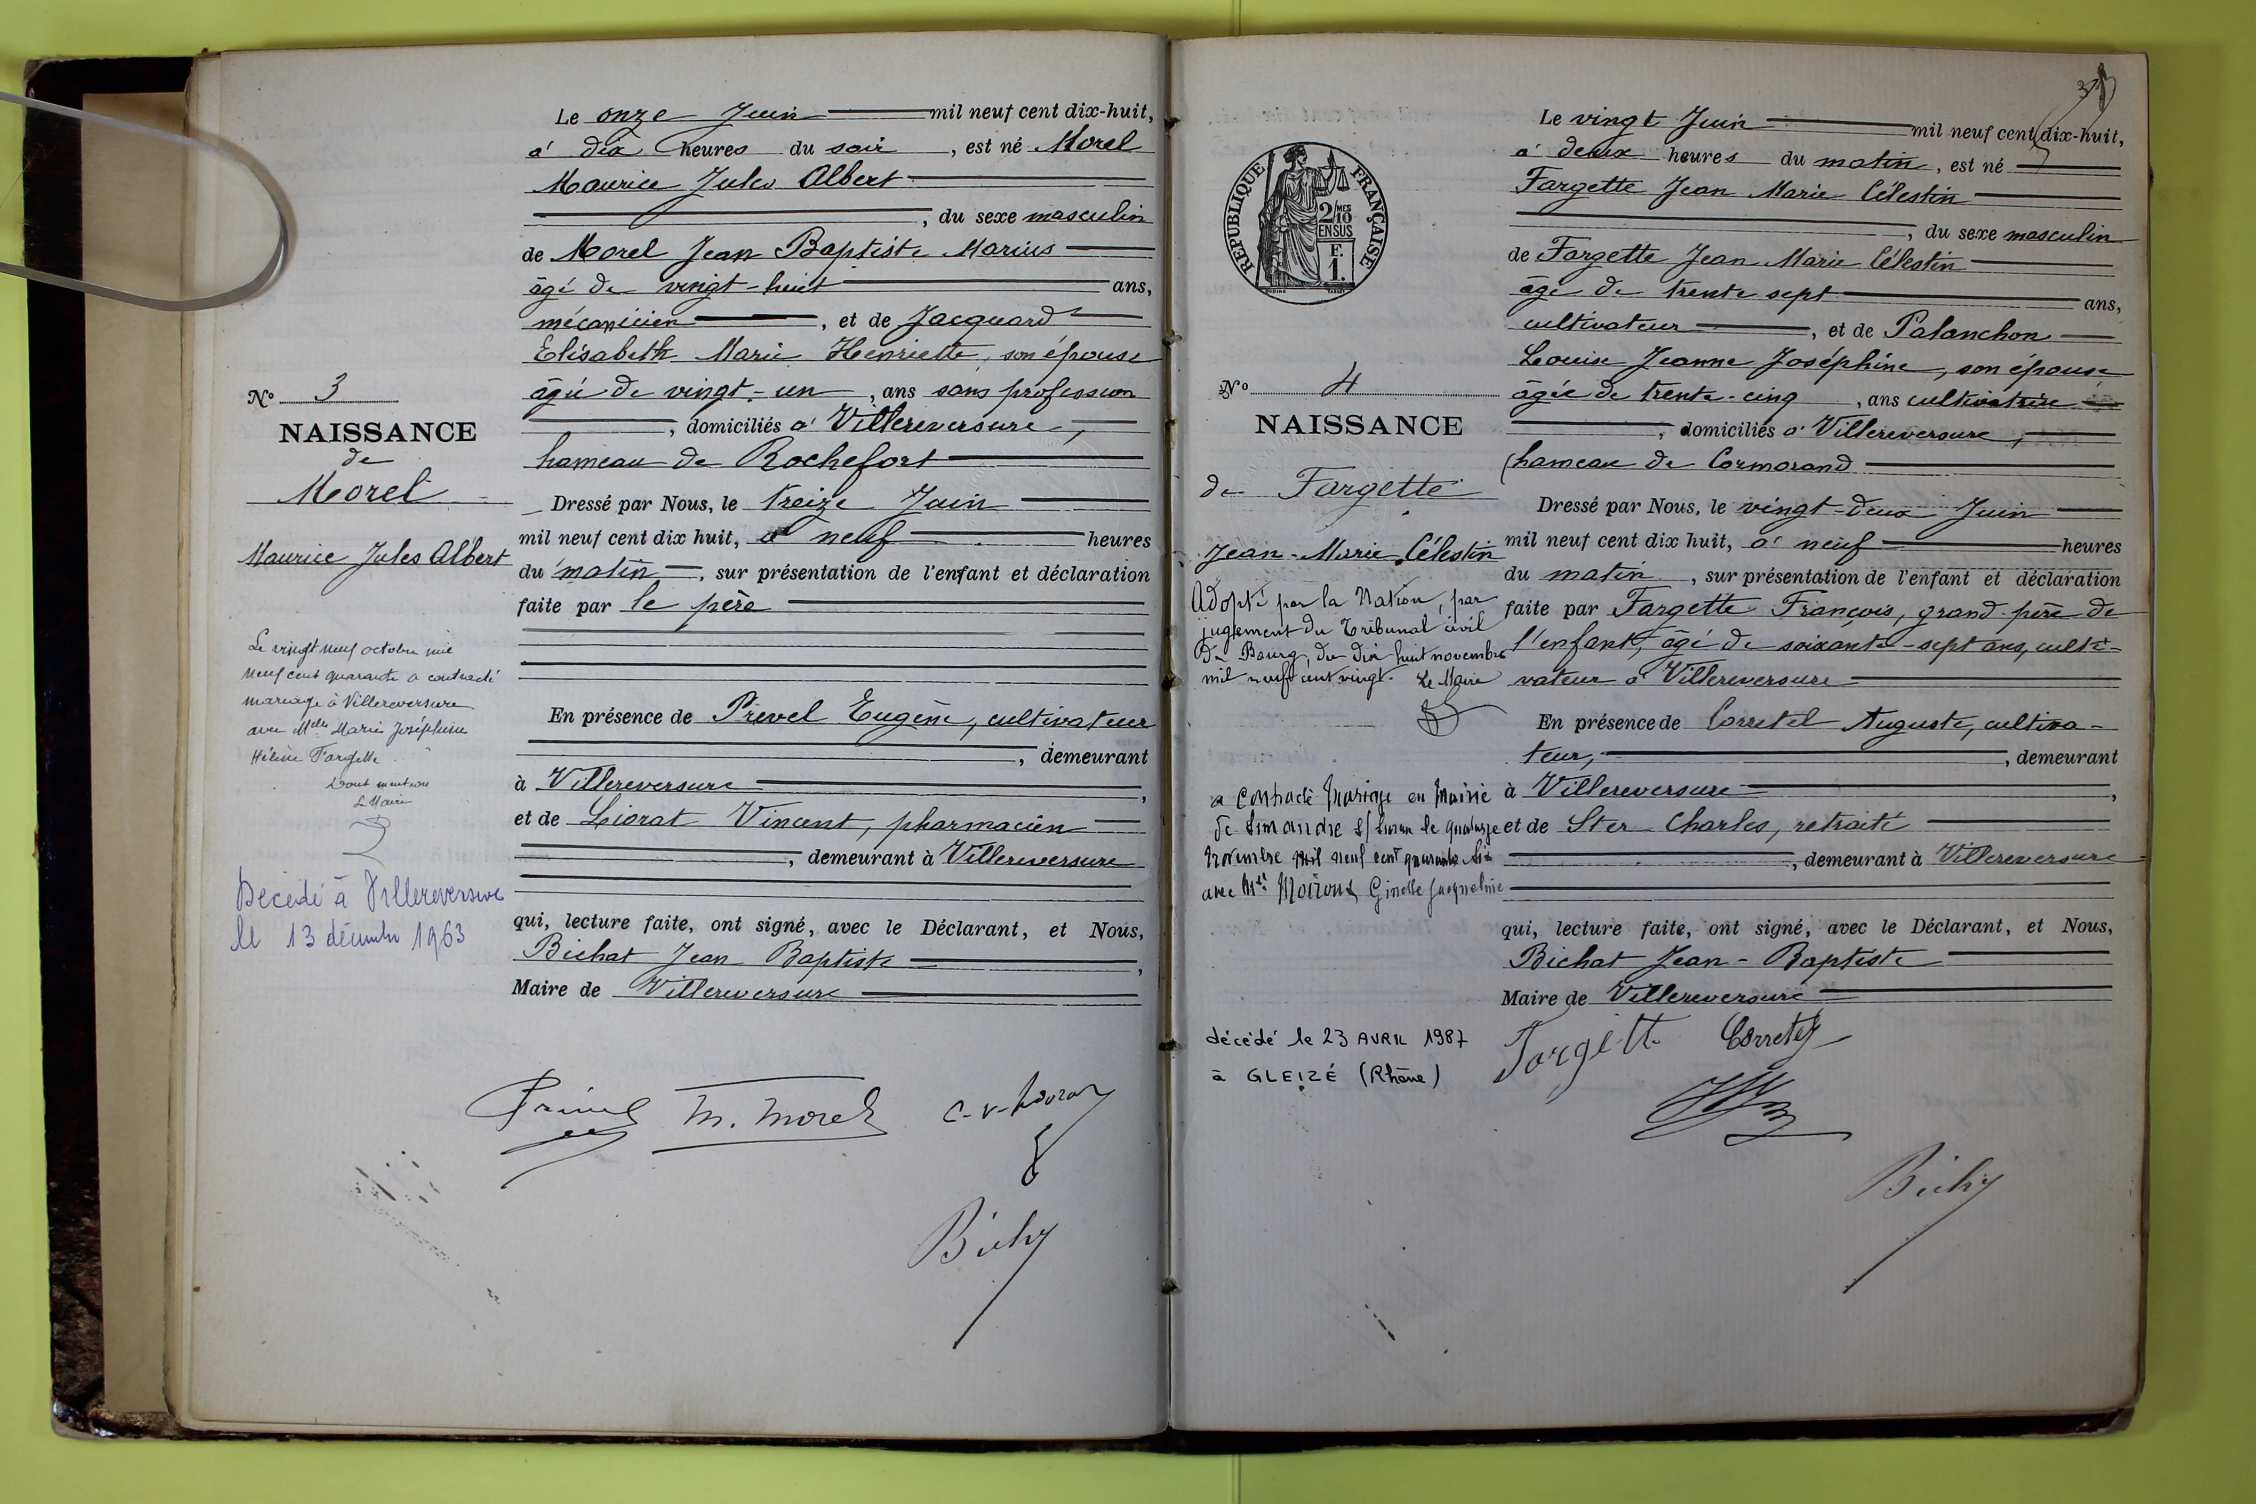 N° 3
NAISSANCE
de
Morel
Maurice Jules Albert
Le vingt neuf octobre mil
neuf cent quarante a contracté
mariage à Villereversure
avec Mlle Marie Joséphine
Hélène Fargette
Dont mention
Le Maire
Décédé à Villereversure
le 13 décembre 1963
Le onze Juin mil neuf cent dix-huit,
à dix heures du soir, est né Morel
Maurice Jules Albert
, du sexe masculin
de Morel Jean Baptiste Marius
âgé de vingt-huit ans,
mécanicien, et de Jacquard
Elisabeth Marie Henriette, son épouse
âgée de vingt-un, ans sans profession
, domiciliés à Villereversure,
hameau de Rochefort
Dressé par Nous, le treize Juin
mil neuf cent dix huit, à neuf heures
du matin, sur présentation de l'enfant et déclaration
faite par le père
En présence de Prevel Eugène, cultivateur
, demeurant
à Villereversure,
et de Liorat Vincent, pharmacien
, demeurant à Villereversure
qui, lecture faite, ont signé, avec le Déclarant, et Nous,
Bichat Jean Baptiste,
Maire de Villereversure
M. Morel
RÉPUBLIQUE FRANÇAISE
2/MES
10
EN SUS
F.
1.
N° 4
NAISSANCE
de Fargette
Jean-Marie Célestin
Adopté par la Nation, par
jugement du Tribunal civil
de Bourg, du dix huit novembre
mil neuf cent vingt. Le Maire
a contracté mariage en mairie
de Simandre s/ Suran le quatorze
novembre mil neuf cent quarante six
avec Mlle Ginette Jacqueline
décédé le 23 AVRIL 1987
à GLEIZÉ (Rhône)
Le vingt Juin mil neuf cent dix-huit,
à deux heures du matin, est né
Fargette Jean Marie Célestin
, du sexe masculin
de Fargette Jean Marie Célestin
âgé de trente sept ans,
cultivateur, et de Palanchon
Louise Jeanne Joséphine, son épouse
âgée de trente-cinq, ans cultivatrice
, domiciliés à Villereversure,
hameau de Cormorand
Dressé par Nous, le vingt-deux Juin
mil neuf cent dix huit, à neuf heures
du matin, sur présentation de l'enfant et déclaration
faite par Fargette François, grand-père de
l'enfant, âgé de soixante-sept ans, culti-
vateur à Villereversure
En présence de Corretel Auguste, cultiva-
teur, demeurant
à Villereversure,
et de Ster Charles, retraité
, demeurant à Villereversure
qui, lecture faite, ont signé, avec le Déclarant, et Nous,
Bichat Jean-Baptiste
Maire de Villereversure
Fargette